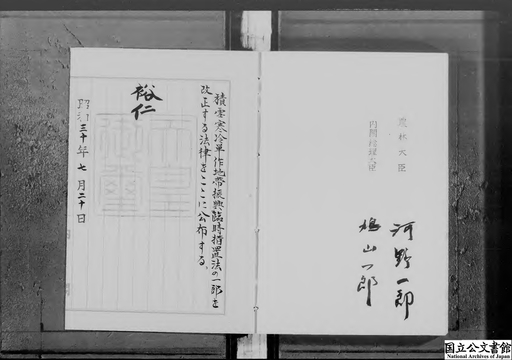 積雪寒冷単作地帯振興臨時措置法の一部を
改正する法律をここに公布する。
裕仁
昭和三十年七月二十日
内閣総理大臣
鳩山一郎
農林大臣
河野一郎
国立公文書館
National Archives of Japan